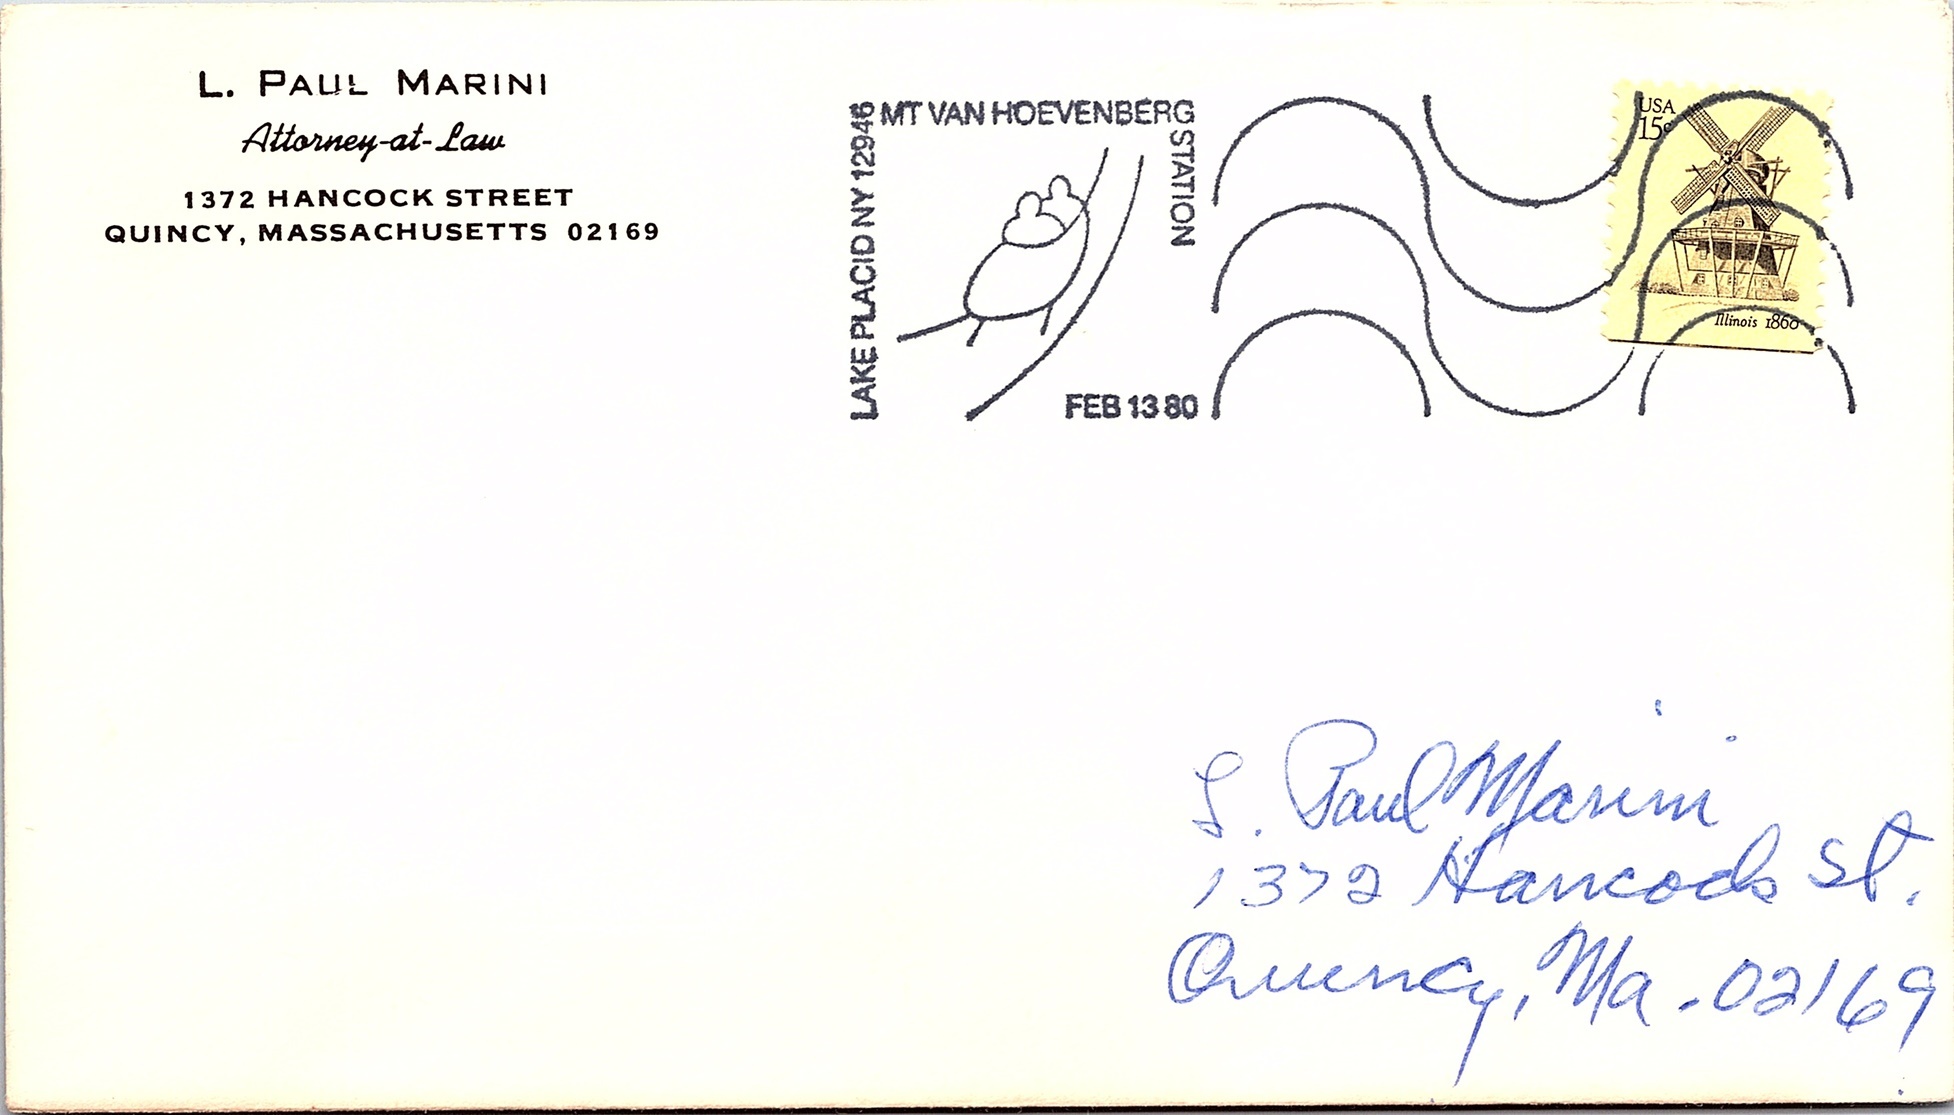 L. PAUL MARINI
Attorney-at-Law
1372 HANCOCK STREET
QUINCY, MASSACHUSETTS 02169
LAKE PLACID NY 12946
MT VAN HOEVENBERG
STATION
FEB 13 80
USA
15c
Illinois 1860
L. Paul Marini
1372 Hancock St.
Quincy, Ma. 02169